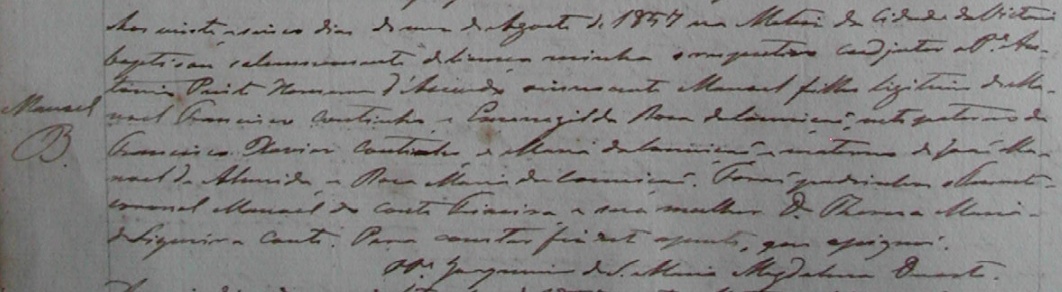 Aos vinte e sinco dias do mez de Agosto de 1857 na Matriz da Cidade da Victoria
baptisou solemnemente de licença minha o respectivo coadjutor o Pe. An-
tonio Homem d'Azevedo o innocente Manoel filho ligitimo de Ma-
Manoel
noel Francisco Coutinho e Ermenegilda Rosa da Conceiçaõ, neto paterno de
B.
Francisco Xavier Coutinho, e Maria da Conceiçaõ e materno de José Ma-
noel de Almeida e Rosa Maria da Conceiçaõ. Foraõ padrinhos o Tenente
coronel Manoel do Couto Teixeira, e sua mulher D. Thereza Maria
de Siqueira e Couto. Para constar fiz este assento, que assignei.
O Pe. Joaquim de S. Maria Magdalena Duarte.